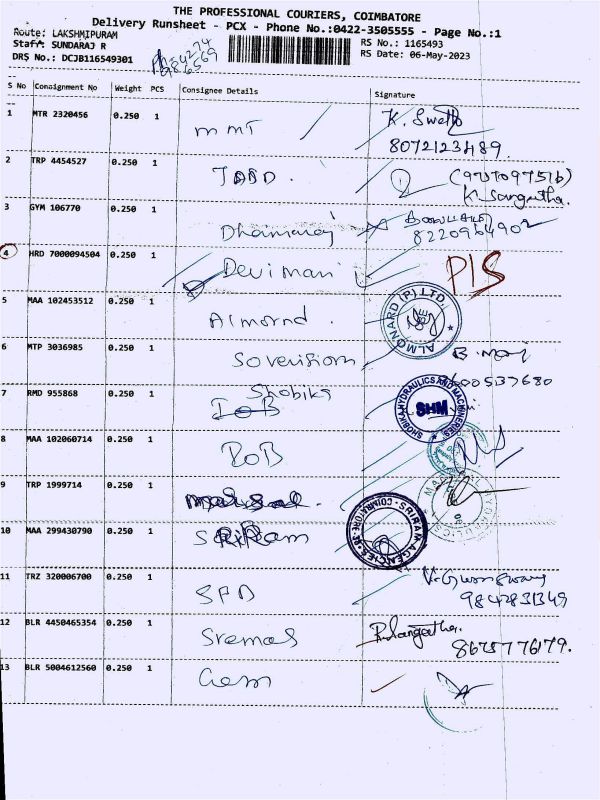 THE PROFESSIONAL COURIERS, COIMBATORE
Delivery Runsheet - PCX - Phone No.:0422-3505555 - Page No.:1
Route: LAKSHMIPURAM
Staff: SUNDARAJ R
RS No.: 1165493
DRS No.: DCJB116549301
RS Date: 06-May-2023
S No Consignment No Weight PCS Consignee Details Signature
1 MTR 2320456 0.250 1 MMT K. Swetha
8072123489.
2 TRP 4454527 0.250 1 (9787097516)
K. Sangeetha.
3 GYM 106770 0.250 1 Dharmaraj
8220964902
4 HRD 7000094504 0.250 1 Devimani
5 MAA 102453512 0.250 1 Almornd. ALMONARD (P) LTD.
6 MTP 3036985 0.250 1 B. Moni
8600537680
7 RMD 955868 0.250 1 Shobika SHOBIKA HYDRAULICS AND MACHINERIES SHM
8 MAA 102060714 0.250 1 BOB
9 TRP 1999714 0.250 1
10 MAA 299430790 0.250 1 SRIRAM AGENCIES COIMBATORE
11 TRZ 320006700 0.250 1 SPD
9842831349
12 BLR 4450465354 0.250 1 Sremas
8675776179.
13 BLR 5004612560 0.250 1 Gem